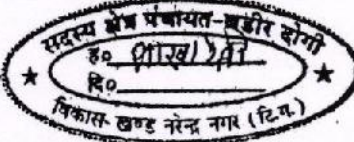 सदस्य क्षेत्र पंचायत-खडीर दोगी
ह०
दि०
विकास-खण्ड नरेन्द्र नगर (टि.ग.)